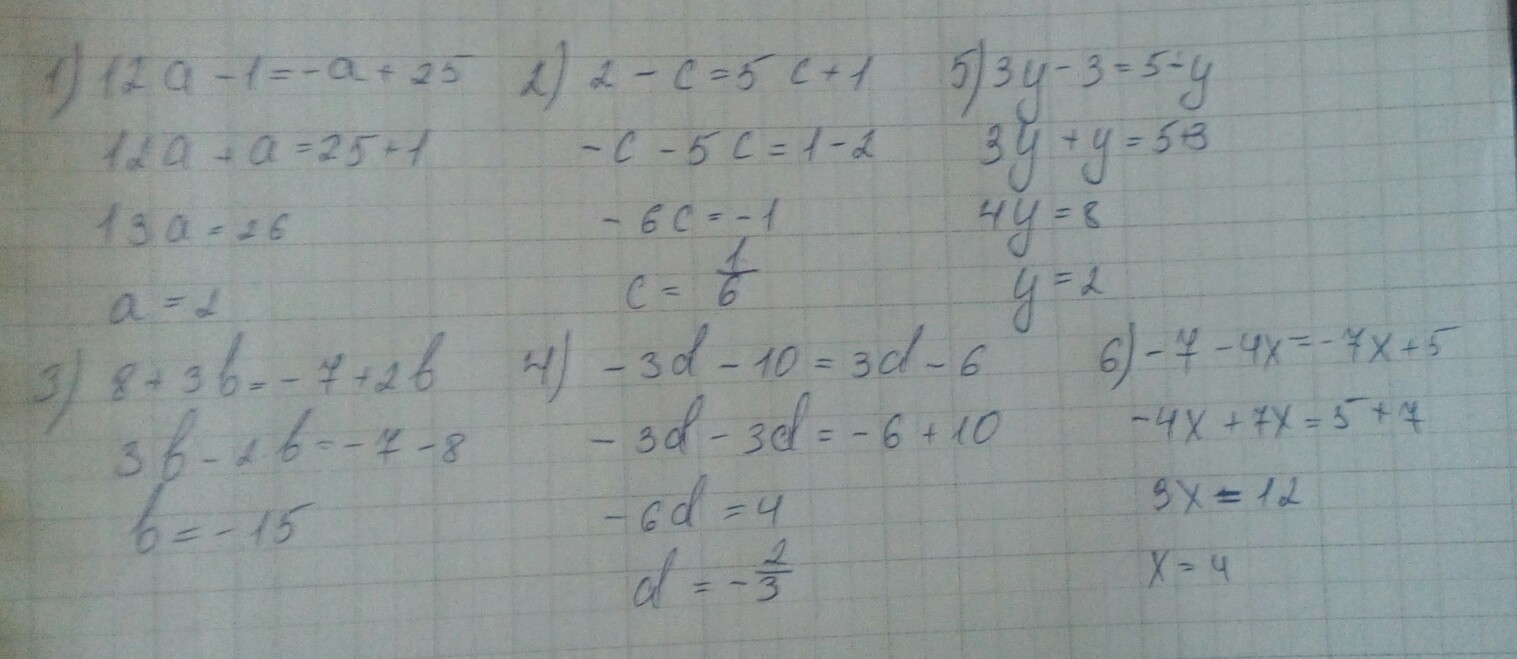 1) 12a - 1 = -a + 25
12a + a = 25 + 1
13a = 26
a = 2
2) 2 - c = 5c + 1
-c - 5c = 1 - 2
-6c = -1
c = 1/6
5) 3y - 3 = 5 - y
3y + y = 5+3
4y = 8
y = 2
3) 8 + 3b = -7 + 2b
3b - 2b = -7 - 8
b = -15
4) -3d - 10 = 3d - 6
-3d - 3d = -6 + 10
-6d = 4
d = -2/3
6) -7 - 4x = -7x + 5
-4x + 7x = 5 + 7
3x = 12
x = 4